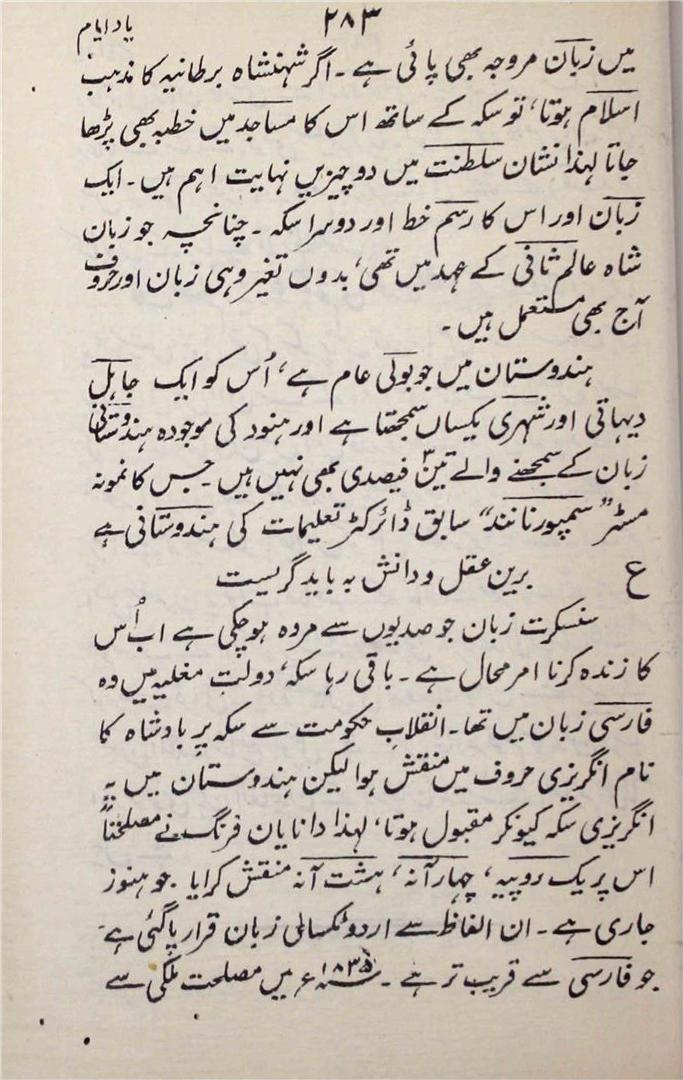 ۲۸۳
یاد ایام
میں زبان مروجہ بھی پائی ہے۔ اگر شہنشاہ برطانیہ کا مذہب
اسلام ہوتا، تو سکہ کے ساتھ اس کا مساجد میں خطبہ بھی پڑھا
جاتا لہٰذا نشان سلطنت میں دو چیزیں نہایت اہم ہیں۔ ایک
زبان اور اس کا رسم خط اور دوسرا سکہ۔ چنانچہ جو زبان
شاہ عالم ثانی کے عہد میں تھی، بدوں تغیر وہی زبان اور حروف
آج بھی مستعمل ہیں۔
ہندوستان میں جو بولی عام ہے، اُس کو ایک جاہل
دیہاتی اور شہری یکساں سمجھتا ہے اور ہنود کی موجودہ ہندوستانی
زبان کے سمجھنے والے تین۳ فیصدی بھی نہیں ہیں۔ جس کا نمونہ
مسٹر "سمپورنانند" سابق ڈائرکٹر تعلیمات کی ہندوستانی ہے
ع برین عقل و دانش بہ باید گریست
سنسکرت زبان جو صدیوں سے مردہ ہو چکی ہے اب اُس
کا زندہ کرنا امر محال ہے۔ باقی رہا سکہ، دولتِ مغلیہ میں وہ
فارسی زبان میں تھا۔ انقلابِ حکومت سے سکہ پر بادشاہ کا
نام انگریزی حروف میں منقش ہوا لیکن ہندوستان میں یہ
انگریزی سکہ کیونکر مقبول ہوتا، لہذا دانایان فرنگ نے مصلحتاً
اس پر یک روپیہ، چہار آنہ، ہشت آنہ منقش کرایا جو ہنوز
جاری ہے۔ ان الفاظ سے اردو ٹکسالی زبان قرار پا گئی ہے
جو فارسی سے قریب تر ہے۔ ۱۸۳۵ء میں مصلحت ملکی سے